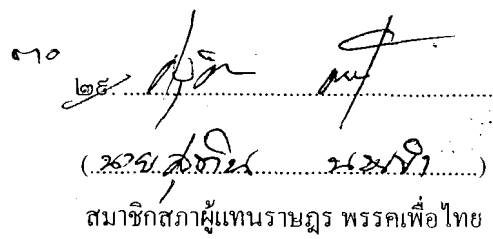 ๓๐
๒๙.
(นาย สุทิน นพขำ)
สมาชิกสภาผู้แทนราษฎร พรรคเพื่อไทย